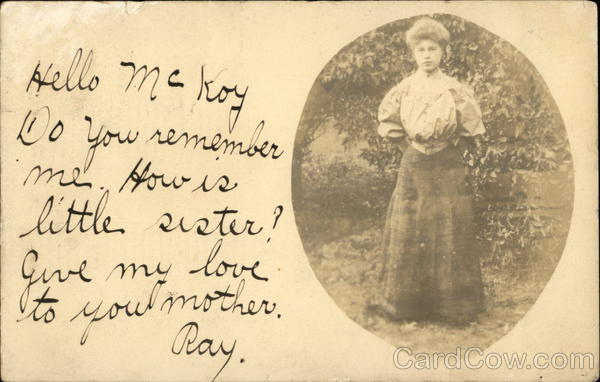 Hello McKoy
Do You remember
me. How is
little sister?
Give my love
to you mother.
Ray.
CardCow.com